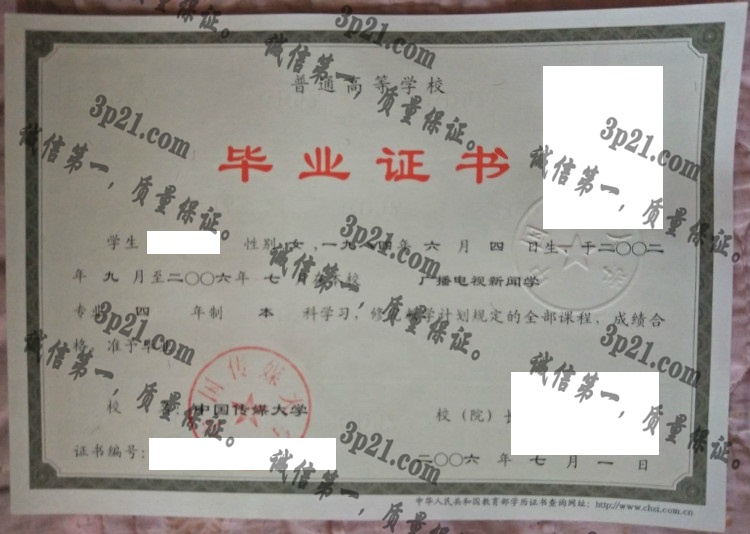 普通高等学校
毕业证书
学生 性别 女,一九 四年 六 月 四 日生,于二〇〇二
年 九 月至二〇〇六年 七 月 校 广播电视新闻学
专业 四 年制 本 科学习,修 学计划规定的全部课程,成绩合
格,准予毕
校 中国传媒大学 校(院)长
证书编号: 二〇〇六 年 七 月 一 日
中华人民共和国教育部学历证书查询网址:http://www.chsi.com.cn
国传媒大学
3p21.com
诚信第一,质量保证。
3p21.com
诚信第一,质量保证。
3p21.com
诚信第一,质量保证。
3p21.com
诚信第一,质量保证。
3p21.com
诚信第一,质量保证。
3p21.com
诚信第一,质量保证。
3p21.com
诚信第一,质量保证。
3p21.com
诚信第一,质量保证。